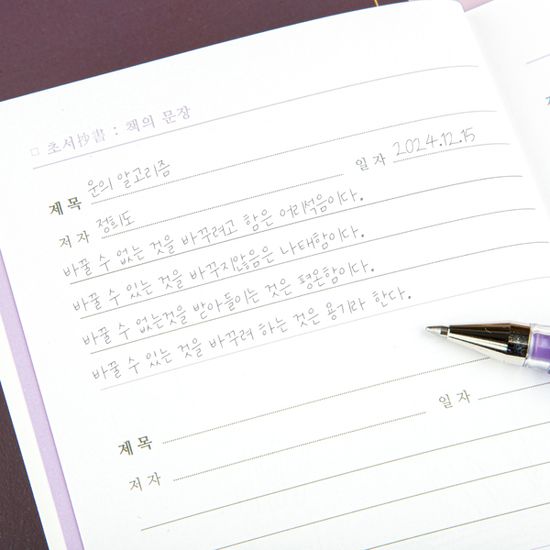 □ 초서抄書 : 책의 문장
제목 운의 알고리즘
일자 2024.12.15
저자 정회도
바꿀 수 없는 것을 바꾸려고 함은 어리석음이다.
바꿀 수 있는 것을 바꾸지않음은 나태함이다.
바꿀 수 없는것을 받아들이는 것은 평온함이다.
바꿀 수 있는 것을 바꾸려 하는 것은 용기라 한다.
제목
일자
저자